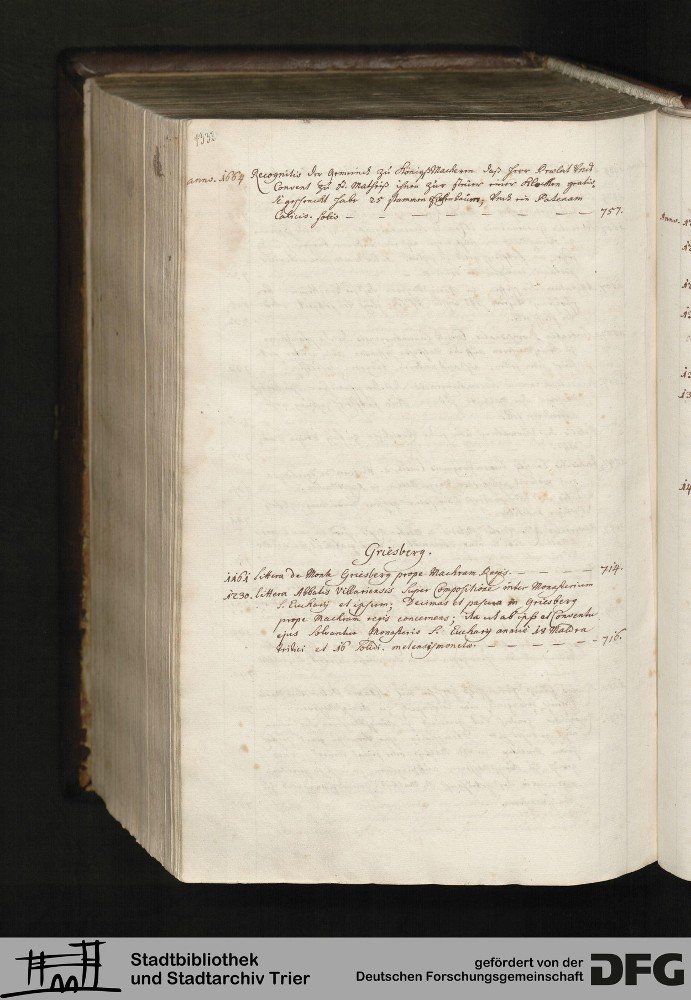 1332
anno. 1664 Recognitio der Gemeind zu Königs Macheren daß Herr Prælat Und
Convent zu St. Mathiß ihnen zur steür einer Klocken gratis
geschenckt habe 25 stammen Eichenbäum, Undt ein Patenam
Calicis. folio — 757.
Griesberg.
1161 littera de Monte Griesberg prope Machram Regis. — 714.
1230. littera Abbatis Villariensis super Compositione inter Monasterium
S. Eucharij et ipsum; Decimas et pascua in Griesberg
prope Machram regis concernens; ita ut ab ipso et Conventu
ejus solvantur Monasterio S. Eucharij annuè 18 Maldra
tritici et 16 solidi metensis monetæ. — 716.
Anno.
Stadtbibliothek
und Stadtarchiv Trier
gefördert von der
Deutschen Forschungsgemeinschaft
DFG